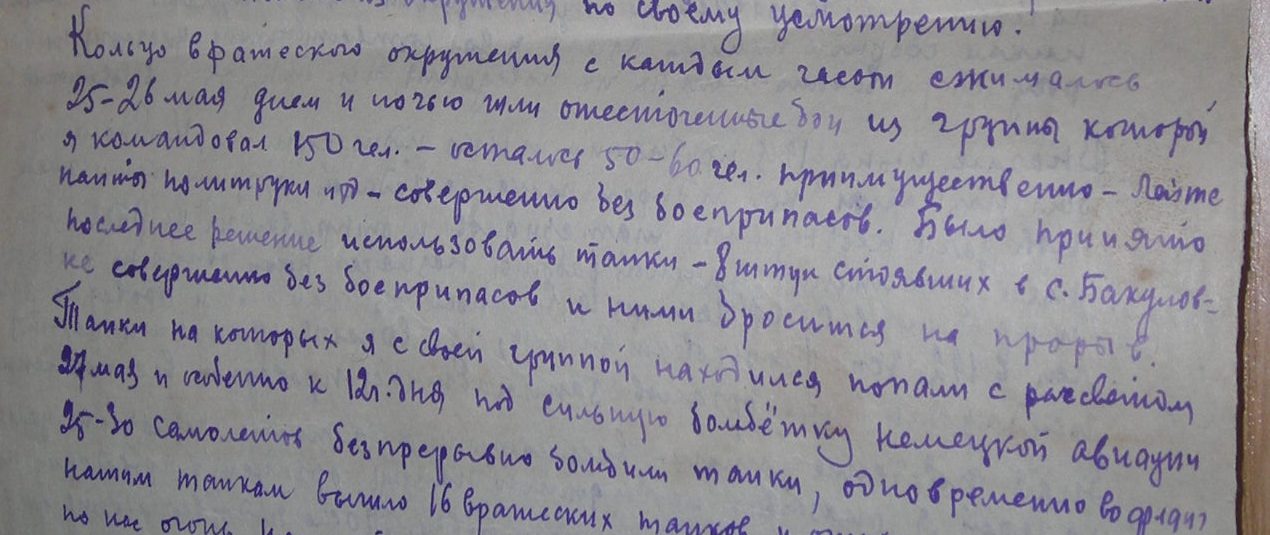 окружения по своему усмотрению.
Кольцо вражеского окружения с каждым часом сжималось
25-26 мая днем и ночью шли ожесточенные бои из групы которой
я командовал 150 чел. – осталось 50-60 чел. приимущественно –
нанты политруки итд – совершенно без боеприпасов. Было принято
последнее решение использовать танки – 8 штук стоявших в с. Бакулов-
ке совершенно без боеприпасов и ними бросится на прорыв.
Танки на которых я с своей группой находился попали с рассветом
27 мая и особенно к 12 г. дня под сильную бомбёжку немецкой авиации
25-30 самолетов безпрерывно бомбили танки, одновременно во фланг
нашим танкам вышло 16 вражеских танков и
по нас огонь